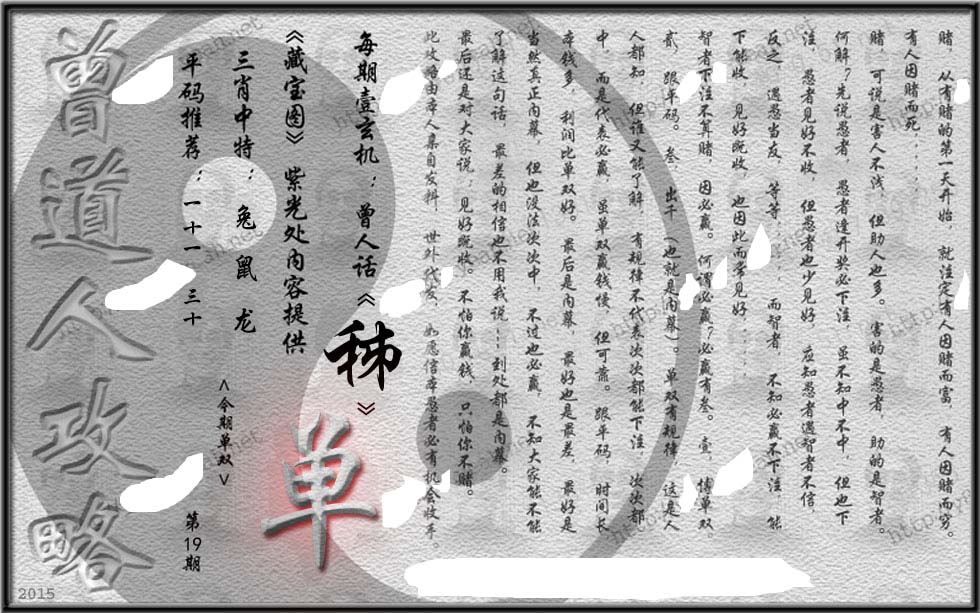 赌, 从有赌的第一天开始, 就注定有人因赌而富, 有人因赌而穷。
有人因赌而死......
赌, 可说是害人不浅, 但助人也多。 害的是愚者, 助的是智者。
何解?先说愚者, 愚者逢开奖必下注, 虽不知中不中, 但也下
注, 愚者见好不收, 但愚者也少见好, 应知愚者遇智者不信,
反之, 遇愚当友, 等等...... 而智者, 不知必赢不下注, 能
下能收, 见好既收, 也因此而常见好......
智者下注不算赌, 因必赢。何谓必赢?必赢有叁。壹, 博单双。
贰, 跟平码。叁, 出千 (也就是内幕)。单双有规律, 这是人
人都知, 但谁又能了解, 有规律不代表次次都能下注, 次次都
中, 而是代表必赢, 虽单双赢钱慢, 但可靠。跟平码, 时间长,
本钱多, 利润比单双好。 最后是内幕, 最好也是最差, 最好是
当然真正内幕, 但也没法次次中, 不过也必赢, 不知大家能不能
了解这句话, 最差的相信也不用我说...到处都是内幕。
最后还是对大家说:见好既收。不怕你赢钱, 只怕你不赌。
此攻略由本人亲自发料, 世外代发, 如愿信本愚者必有机会收手。
每期壹玄机: 曾人话《秭》
单
《藏宝图》 紫光处内容提供
三肖中特: 兔 鼠 龙
<今期单双>
平码推荐: 一十一 三十
第19期
曾道人攻略
2015